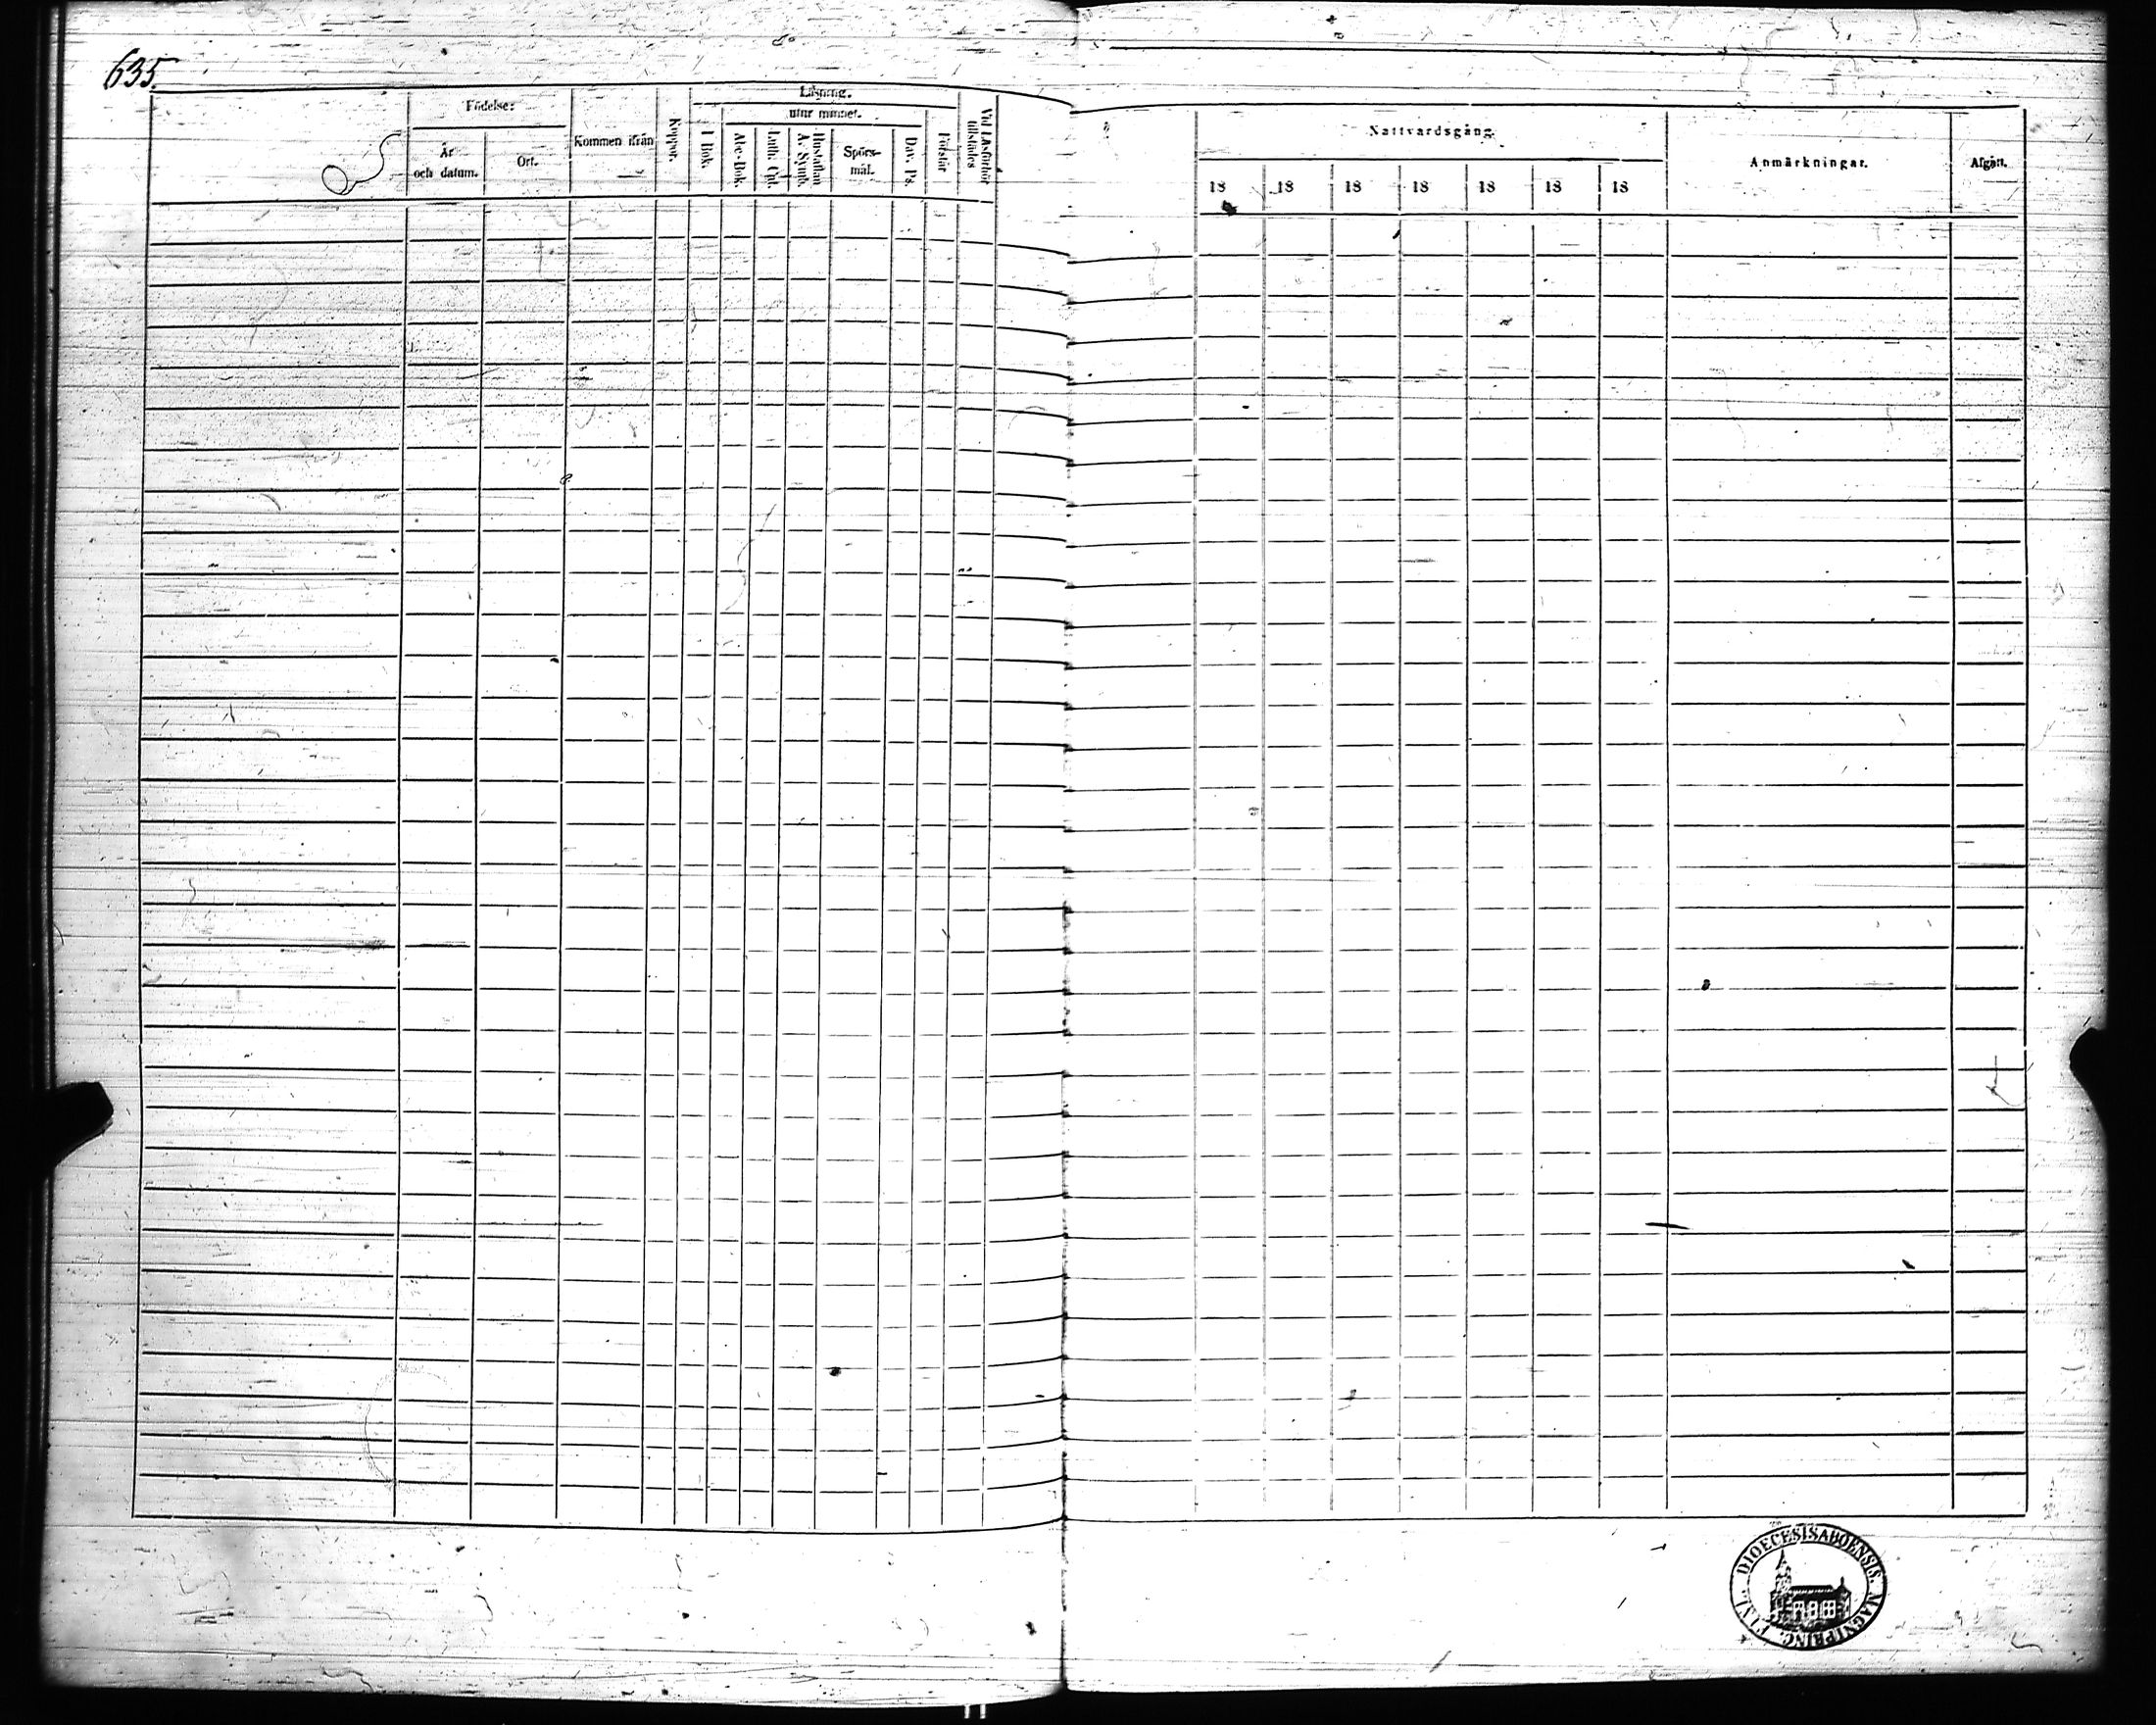 635.
Födelse:
År
och datum.
Ort.
Kommen ifrån
Koppor.
Läsning.
I Bok.
utur minnet.
Abc-Bok.
Luth. Cat.
Hustaflan
A. Symb.
Spörs-
mål.
Dav. Ps.
Förstår
Vid Läsförhör
tillstädes
Nattvardsgång.
18 18 18 18 18 18 18
Anmärkningar.
Afgått.
DIOECESIS ABOENSIS. MAGNI PRINC. FINL.